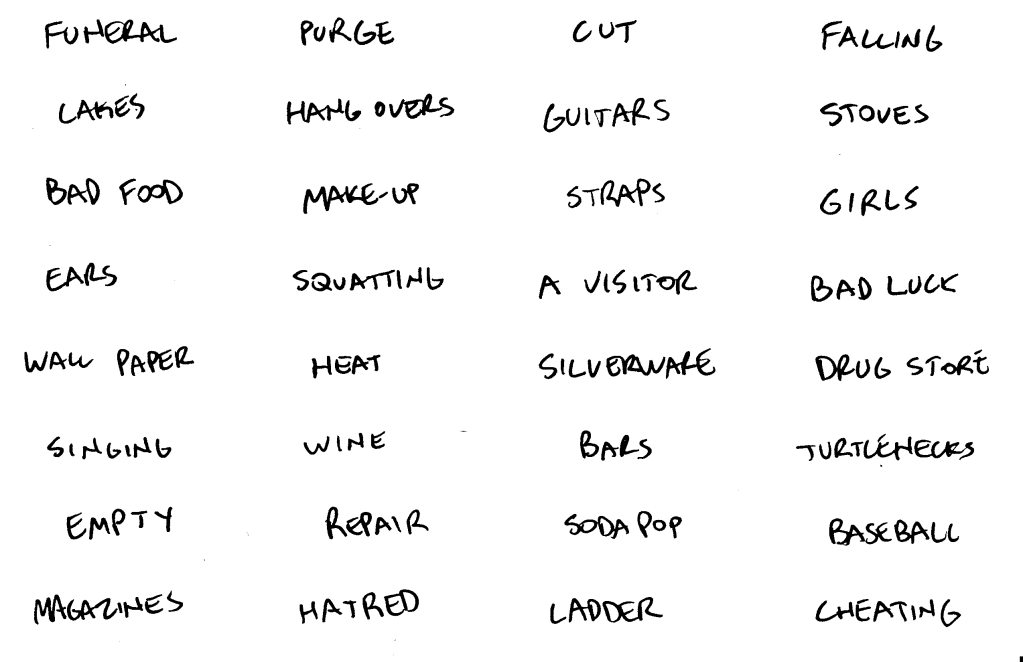 FUNERAL PURGE CUT FALLING
LAKES HANG OVERS GUITARS STOVES
BAD FOOD MAKE-UP STRAPS GIRLS
EARS SQUATTING A VISITOR BAD LUCK
WALL PAPER HEAT SILVERWARE DRUG STORE
SINGING WINE BARS TURTLENECKS
EMPTY REPAIR SODA POP BASEBALL
MAGAZINES HATRED LADDER CHEATING